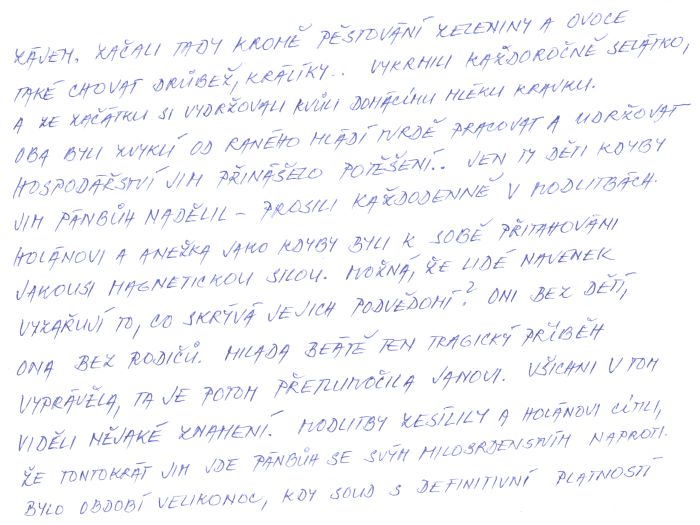 ZÁJEM. ZAČALI TADY KROMĚ PĚSTOVÁNÍ ZELENINY A OVOCE
TAKÉ CHOVAT DRŮBEŽ, KRÁLÍKY.. VYKRMILI KAŽDOROČNĚ SELÁTKO,
A ZE ZAČÁTKU SI VYDRŽOVALI KVŮLI DOMÁCÍMU MLÉKU KRAVKU.
OBA BYLI ZVYKLÍ OD RANÉHO MLÁDÍ TVRDĚ PRACOVAT A UDRŽOVAT
HOSPODÁŘSTVÍ JIM PŘINÁŠELO POTĚŠENÍ.. JEN TY DĚTI KDYBY
JIM PÁNBŮH NADĚLIL – PROSILI KAŽDODENNĚ V MODLITBÁCH.
HOLÁNOVI A ANEŽKA JAKO KDYBY BYLI K SOBĚ PŘITAHOVÁNI
JAKOUSI MAGNETICKOU SILOU. MOŽNÁ, ŽE LIDÉ NAVENEK
VYZAŘUJÍ TO, CO SKRÝVÁ JEJICH PODVĚDOMÍ? ONI BEZ DĚTÍ,
ONA BEZ RODIČŮ. MILADA BEÁTĚ TEN TRAGICKÝ PŘÍBĚH
VYPRÁVĚLA, TA JE POTOM PŘETLUMOČILA JANOVI. VŠICHNI V TOM
VIDĚLI NĚJAKÉ ZNAMENÍ. MODLITBY ZESÍLILY A HOLÁNOVI CÍTILI,
ŽE TENTOKRÁT JIM JDE PÁNBŮH SE SVÝM MILOSRDENSTVÍM NAPROTI.
BYLO OBDOBÍ VELIKONOC, KDY SOUD S DEFINITIVNÍ PLATNOSTÍ